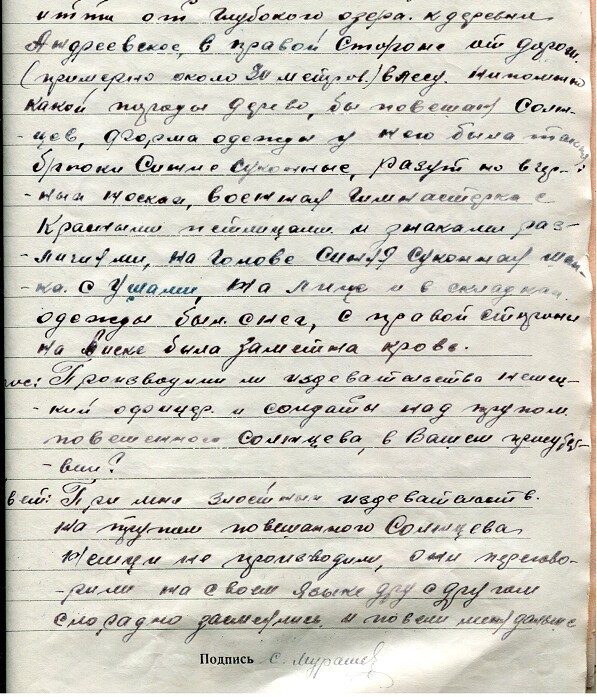 итти от глубокого озера. к деревни
Андреевское, в правой стороне от дороги.
(примерно около 30 метров) в лесу. непомню
какой породы дерево, был повешан Солн-
-цев, форма одежды у него была такая
брюки Синие суконные, разут но в чер-
-ных носках, военная гимнастерка с
Красными петлицами и знаками раз-
-личиями, на голове Синяя суконная шап-
-ка с ушами, на лице и в складках
одежды был снег, с правой стороны
на виске была заметна кровь.
рос: Производили ли издевательства немец-
-кий офицер и солдаты над трупом
повешенного Солнцева, в Вашем присутст-
-вии?
вет: При мня злостных издевательств.
на трупом повешанного Солнцева
немцы не производили, они перегово-
-рили на своем языке друг с другом
злорадно засмеялись и повели меня дальше
Подпись С. Мурашев